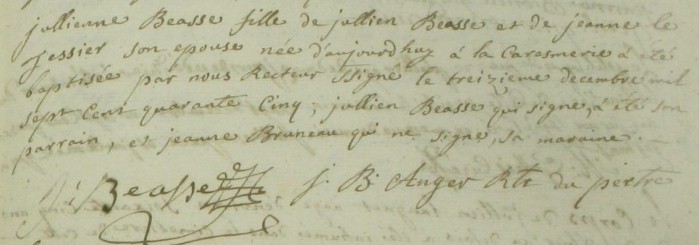 jullienne Beasse fille de jullien Beasse et de jeanne le
Tessier son epouse née d'aujourd'huy à la Caresmerie à eté
baptisée par nous Recteur ssigné le treizieme decembre mil
sept Cent quarante Cinq, jullien Beasse qui signe, à été son
parrain, et jeanne Bruneau qui ne signe, sa maraine.
J. Beasse J. B. Anger Rtr du pertre